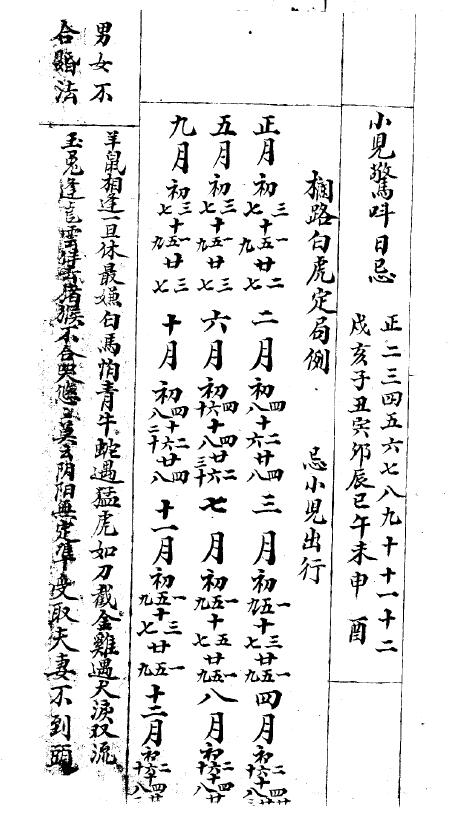 小児驚呌日忌
正二三四五六七八九十十一十二
戌亥子丑寅卯辰巳午未申酉
攔路白虎定局例 忌小児出行
正月初三七十一五九廿二七 二月初四八十二六廿四八 三月初一五九十三七廿一五九 四月初二六十十四八廿
五月初三七十一五九廿三七 六月初 七月初一五九十 廿一五九 八月初二六十十四八廿
九月初三七十一五九廿三七 十月初四八十二六廿四八 十一月初一五九十三七廿一五九 十二月初二六十十四八廿
男女不
合婚法
羊鼠相逢一旦休最嫌白馬怕青牛蛇遇猛虎如刀截金雞遇犬淚双流
玉兎逢龍雲 去猪猴不合哭 莫云阴阳無定準 受取夫妻不到頭